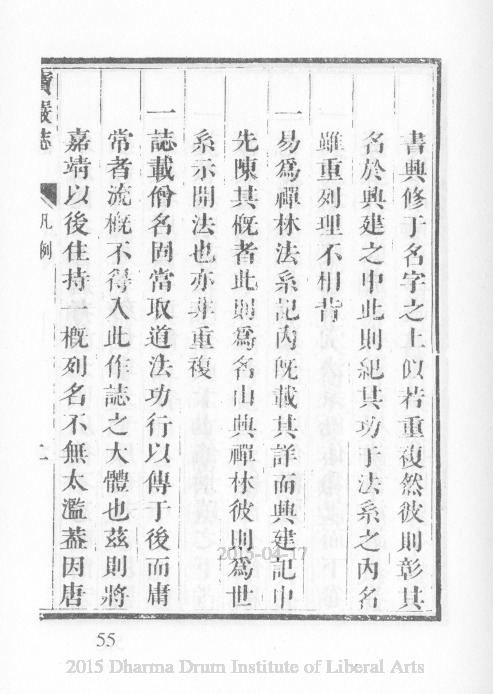 書興修于名字之上似若重複然彼則彰其
名於興建之中此則紀其功于法系之內名
雖重列理不相背
一易為禪林法系記內既載其詳而興建記中
先陳其概者此則為名山興禪林彼則為世
系示開法也亦非重複
一誌載僧名固當取道法功行以傳于後而庸
常者流概不得入此作誌之大體也茲則將
嘉靖以後住持一概列名不無太濫蓋因唐
寶嚴志
凡例
二
55
2015-04-17
2015 Dharma Drum Institute of Liberal Arts